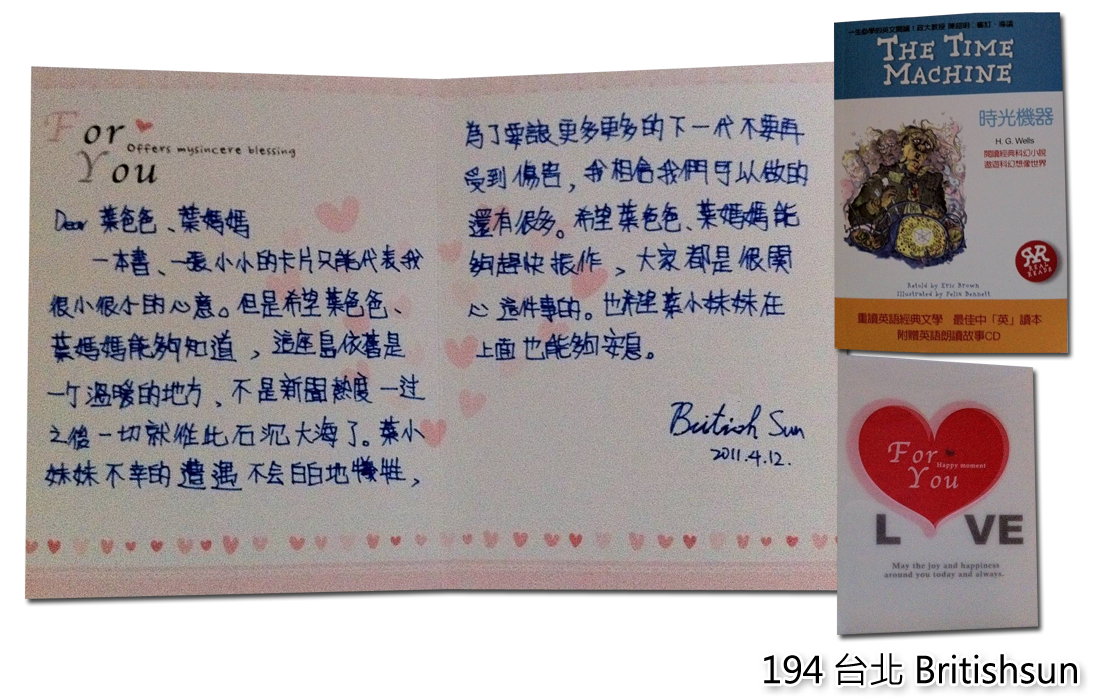 For
You
Offers mysincere blessing
Dear 葉爸爸、葉媽媽
一本書、一張小小的卡片只能代表我
很小很小的心意。但是希望葉爸爸、
葉媽媽能夠知道，這座島依舊是
一个溫暖的地方，不是新聞熱度一过
之後一切就從此石沉大海了。葉小
妹妹不幸的遭遇不会白白地犧牲，
為了要讓更多更多的下一代不要再
受到傷害，我相信我們可以做的
還有很多。希望葉爸爸、葉媽媽能
夠趕快振作，大家都是很関
心這件事的。也希望葉小妹妹在
上面也能夠安息。
British Sun
2011.4.12.
THE TIME
MACHINE
時光機器
H. G. Wells
閱讀經典科幻小說
遨遊科幻想像世界
REAL
READS
Retold by Eric Brown
Illustrated by Felix Bennett
重讀英語經典文學 最佳中「英」讀本
附贈英語朗讀故事CD
For
Happy moment
You
L VE
May the joy and happiness
around you today and always.
194 台北 Britishsun